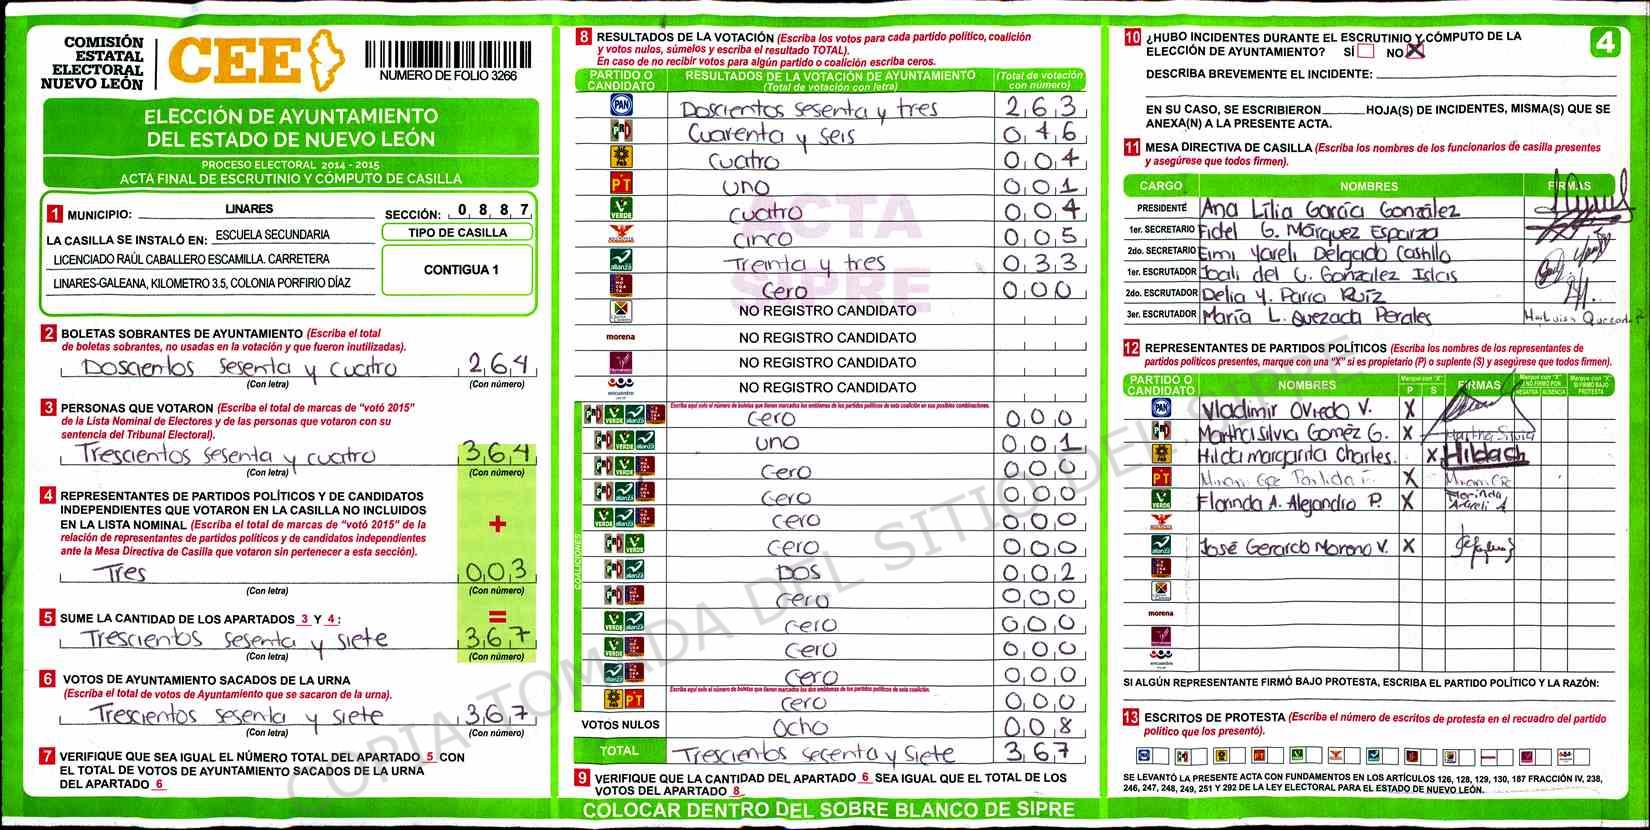 COMISIÓN
ESTATAL
ELECTORAL
NUEVO LEÓN
CEE
NUMERO DE FOLIO 3266
ELECCIÓN DE AYUNTAMIENTO
DEL ESTADO DE NUEVO LEÓN
PROCESO ELECTORAL 2014 - 2015
ACTA FINAL DE ESCRUTINIO Y CÓMPUTO DE CASILLA
1 MUNICIPIO: LINARES SECCIÓN: 0 8 8 7
LA CASILLA SE INSTALÓ EN: ESCUELA SECUNDARIA
LICENCIADO RAÚL CABALLERO ESCAMILLA. CARRETERA
LINARES-GALEANA, KILOMETRO 3.5, COLONIA PORFIRIO DÍAZ
TIPO DE CASILLA
CONTIGUA 1
2 BOLETAS SOBRANTES DE AYUNTAMIENTO (Escriba el total
de boletas sobrantes, no usadas en la votación y que fueron inutilizadas).
Doscientos sesenta y cuatro 2 6 4
(Con letra) (Con número)
3 PERSONAS QUE VOTARON (Escriba el total de marcas de “votó 2015”
de la Lista Nominal de Electores y de las personas que votaron con su
sentencia del Tribunal Electoral).
Trescientos sesenta y cuatro 3 6 4
(Con letra) (Con número)
4 REPRESENTANTES DE PARTIDOS POLÍTICOS Y DE CANDIDATOS
INDEPENDIENTES QUE VOTARON EN LA CASILLA NO INCLUIDOS
EN LA LISTA NOMINAL (Escriba el total de marcas de “votó 2015” de la
relación de representantes de partidos políticos y de candidatos independientes
ante la Mesa Directiva de Casilla que votaron sin pertenecer a esta sección).
+
Tres 0 0 3
(Con letra) (Con número)
5 SUME LA CANTIDAD DE LOS APARTADOS 3 Y 4: =
Trescientos sesenta y siete 3 6 7
(Con letra) (Con número)
6 VOTOS DE AYUNTAMIENTO SACADOS DE LA URNA
(Escriba el total de votos de Ayuntamiento que se sacaron de la urna).
Trescientos sesenta y siete 3 6 7
(Con letra) (Con número)
7 VERIFIQUE QUE SEA IGUAL EL NÚMERO TOTAL DEL APARTADO 5 CON
EL TOTAL DE VOTOS DE AYUNTAMIENTO SACADOS DE LA URNA
DEL APARTADO 6
8 RESULTADOS DE LA VOTACIÓN (Escriba los votos para cada partido político, coalición
y votos nulos, súmelos y escriba el resultado TOTAL).
En caso de no recibir votos para algún partido o coalición escriba ceros.
PARTIDO O CANDIDATO RESULTADOS DE LA VOTACIÓN DE AYUNTAMIENTO (Total de votación con letra) (Total de votación con número)
PAN Doscientos sesenta y tres 2 6 3
PRI Cuarenta y seis 0 4 6
PRD cuatro 0 0 4
PT uno 0 0 1
VERDE cuatro 0 0 4
cinco 0 0 5
alianza Treinta y tres 0 3 3
cero 0 0 0
NO REGISTRO CANDIDATO
morena NO REGISTRO CANDIDATO
NO REGISTRO CANDIDATO
encuentro NO REGISTRO CANDIDATO
COALICIONES
Escriba aquí solo el número de boletas que tienen marcados los emblemas de los partidos políticos de esta coalición en sus posibles combinaciones.
cero 0 0 0
uno 0 0 1
cero 0 0 0
cero 0 0 0
cero 0 0 0
cero 0 0 0
DOS 0 0 2
cero 0 0 0
cero 0 0 0
cero 0 0 0
cero 0 0 0
Escriba aquí solo el número de boletas que tienen marcados los dos emblemas de los partidos políticos de esta coalición.
cero 0 0 0
VOTOS NULOS Ocho 0 0 8
TOTAL Trescientos sesenta y siete 3 6 7
9 VERIFIQUE QUE LA CANTIDAD DEL APARTADO 6 SEA IGUAL QUE EL TOTAL DE LOS
VOTOS DEL APARTADO 8
COLOCAR DENTRO DEL SOBRE BLANCO DE SIPRE
ACTA
SIPRE
COPIA TOMADA DEL SITIO DEL SIPRE
10 ¿HUBO INCIDENTES DURANTE EL ESCRUTINIO Y CÓMPUTO DE LA
ELECCIÓN DE AYUNTAMIENTO? SÍ NO X
4
DESCRIBA BREVEMENTE EL INCIDENTE:
EN SU CASO, SE ESCRIBIERON HOJA(S) DE INCIDENTES, MISMA(S) QUE SE
ANEXA(N) A LA PRESENTE ACTA.
11 MESA DIRECTIVA DE CASILLA (Escriba los nombres de los funcionarios de casilla presentes
y asegúrese que todos firmen).
CARGO NOMBRES FIRMAS
PRESIDENTE Ana Lilia García González
1er. SECRETARIO Fidel G. Márquez Esparza
2do. SECRETARIO Eimi Yareli Delgado Castillo
1er. ESCRUTADOR Joali del C. González Islas
2do. ESCRUTADOR Delia Y. Parra Ruíz
3er. ESCRUTADOR María L. Quezada Perales Ma. Luisa Quezada P
12 REPRESENTANTES DE PARTIDOS POLÍTICOS (Escriba los nombres de los representantes de
partidos políticos presentes, marque con una “X” si es propietario (P) o suplente (S) y asegúrese que todos firmen).
PARTIDO O CANDIDATO NOMBRES Marque con "X" P S FIRMAS Marque con "X" SI NO FIRMÓ POR NEGATIVA AUSENCIA Marque con "X" SI FIRMÓ BAJO PROTESTA
PAN Vladimir Oviedo V. X
PRI Martha Silvia Goméz G. X Martha Silvia
PRD Hilda margarita Charles. X Hilda ch
PT X
VERDE Florinda A. Alejandro P. X Florinda Araceli A
alianza José Gerardo Moreno V. X
morena
encuentro
SI ALGÚN REPRESENTANTE FIRMÓ BAJO PROTESTA, ESCRIBA EL PARTIDO POLÍTICO Y LA RAZÓN:
13 ESCRITOS DE PROTESTA (Escriba el número de escritos de protesta en el recuadro del partido
político que los presentó).
SE LEVANTÓ LA PRESENTE ACTA CON FUNDAMENTOS EN LOS ARTÍCULOS 126, 128, 129, 130, 187 FRACCIÓN IV, 238,
246, 247, 248, 249, 251 Y 292 DE LA LEY ELECTORAL PARA EL ESTADO DE NUEVO LEÓN.